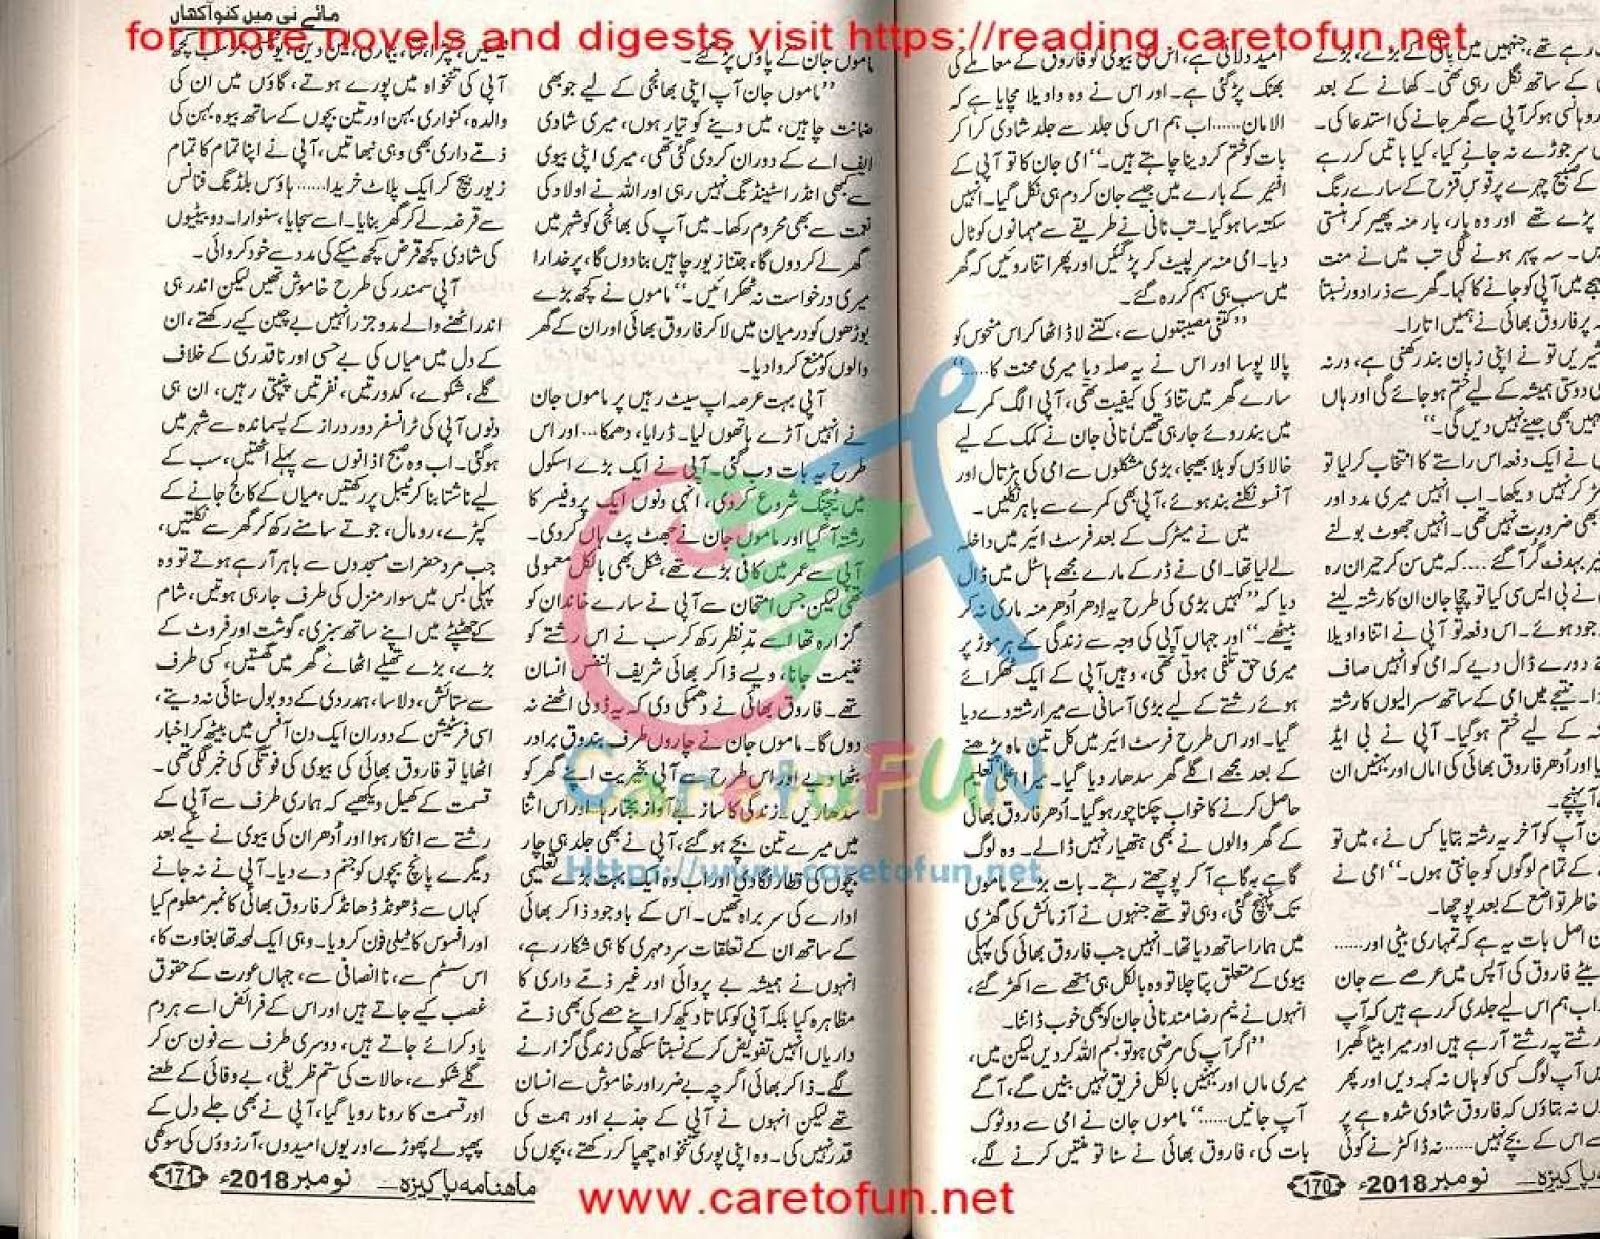 for more novels and digests visit https://reading.caretofun.net
مائے نی میں کنو آکھاں
امید دلائی ہے، اس کی بیوی کو فاروق کے معاملے کی
بھنک پڑ گئی ہے۔ اور اس نے وہ واویلا مچایا ہے کہ
الامان...... اب ہم اس کی جلد سے جلد شادی کرا کر
بات کو ختم کر دینا چاہتے ہیں۔“ امی جان کا تو آپی کے
افئیر کے بارے میں جیسے جان کر دم ہی نکل گیا۔ انہیں
سکتہ سا ہو گیا۔ تب نانی نے طریقے سے مہمانوں کو ٹال
دیا۔ امی منہ سر لپیٹ کر پڑ گئیں اور پھر اتنا روئیں کہ گھر
میں سب ہی سہم کر رہ گئے۔
”کتنی مصیبتوں سے، کتنے لاڈ اٹھا کر اس منحوس کو
پالا پوسا اور اس نے یہ صلہ دیا میری محنت کا......“
سارے گھر میں تناؤ کی کیفیت تھی، آپی الگ کمرے
میں بند روئے جا رہی تھیں نانی جان نے کمک کے لیے
خالاؤں کو بلا بھیجا، بڑی مشکلوں سے امی کی ہڑتال اور
آنسو نکلنے بند ہوئے، آپی بھی کمرے سے باہر نکلیں۔
میں نے میٹرک کے بعد فرسٹ ائیر میں داخلہ
لے لیا تھا۔ امی نے ڈر کے مارے مجھے ہاسٹل میں ڈال
دیا کہ ”کہیں بڑی کی طرح یہ اِدھر اُدھر منہ ماری نہ کر
بیٹھے۔“ اور جہاں آپی کی وجہ سے زندگی کے ہر موڑ پر
میری حق تلفی ہوتی تھی، وہیں آپی کے ایک ٹھکرائے
ہوئے رشتے کے لیے بڑی آسانی سے میرا رشتہ دے دیا
گیا۔ اور اس طرح فرسٹ ائیر میں کل تین ماہ پڑھنے
کے بعد مجھے اگلے گھر سدھار دیا گیا۔ میرا اعلیٰ تعلیم
حاصل کرنے کا خواب چکنا چور ہو گیا۔ اُدھر فاروق بھائی
کے گھر والوں نے بھی ہتھیار نہیں ڈالے۔ وہ لوگ
گاہے بہ گاہے آ کر پوچھتے رہتے۔ بات بڑے ماموں
تک پہنچ گئی، وہی تو تھے جنہوں نے آزمائش کی گھڑی
میں ہمارا ساتھ دیا تھا۔ انہیں جب فاروق بھائی کی پہلی
بیوی کے متعلق پتا چلا تو وہ بالکل ہی ہتھے سے اکھڑ گئے،
انہوں نے نیم رضا مند نانی جان کو بھی خوب ڈانٹا۔
”اگر آپ کی مرضی ہو تو بسم اللہ کر دیں لیکن میں،
میری ماں اور بہنیں بالکل فریق نہیں بنیں گے، آگے
آپ جانیں......“ ماموں جان نے امی سے دو ٹوک
بات کی، فاروق بھائی نے سنا تو منتیں کرنے لگے،
رہے تھے، جنہیں میں پانی کے بڑے، بڑے
کے ساتھ نگل رہی تھی۔ کھانے کے بعد
روہانسی ہو کر آپی سے گھر جانے کی استدعا کی۔
سر جوڑے نہ جانے کیا، کیا باتیں کر رہے
کے صبیح چہرے پر قوس قزح کے سارے رنگ
پڑے تھے اور وہ بار، بار منہ پھیر کر ہنستی
سہ پہر ہونے لگی تب میں نے منت
میں آپی کو جانے کا کہا۔ گھر سے ذرا دور نسبتاً
پر فاروق بھائی نے ہمیں اتارا۔
شیریں تو نے اپنی زبان بند رکھنی ہے، ورنہ
دوستی ہمیشہ کے لیے ختم ہو جائے گی اور ہاں
بھی جینے نہیں دیں گی۔“
نے ایک دفعہ اس راستے کا انتخاب کر لیا تو
کر نہیں دیکھا۔ اب انہیں میری مدد اور
بھی ضرورت نہیں تھی۔ انہیں جھوٹ بولنے
بہدف گر آ گئے .... کہ میں سن کر حیران رہ
نے بی ایس سی کیا تو چچا جان ان کا رشتہ لینے
ہوئے۔ اس دفعہ تو آپی نے اتنا واویلا
دورے ڈال دیے کہ امی کو انہیں صاف
نتیجے میں امی کے ساتھ سسرالیوں کا رشتہ
کے لیے ختم ہو گیا۔ آپی نے بی ایڈ
اور اُدھر فاروق بھائی کی اماں اور بہنیں ان
آ پہنچے۔
آپ کو آخر یہ رشتہ بتایا کس نے، میں تو
کے تمام لوگوں کو جانتی ہوں۔“ امی نے
خاطر تواضع کے بعد پوچھا۔
اصل بات یہ ہے کہ تمہاری بیٹی اور......
بیٹے فاروق کی آپس میں عرصے سے جان
اب ہم اس لیے جلدی کر رہے ہیں کہ آپ
رشتے پہ رشتے آ رہے ہیں اور میرا بیٹا گھبرا
میں آپ لوگ کسی کو ہاں نہ کہہ دیں اور پھر
نہ بتاؤں کہ فاروق شادی شدہ ہے پر
اس کے بچے نہیں...... نہ ڈاکٹر نے کوئی
پاکیزہ ــ نومبر 2018ء 170
ماموں جان کے پاؤں پڑ گئے۔
”ماموں جان آپ اپنی بھانجی کے لیے جو بھی
ضمانت چاہیں، میں دینے کو تیار ہوں، میری شادی
ایف اے کے دوران کر دی گئی تھی، میری اپنی بیوی
سے کبھی انڈر اسٹینڈنگ نہیں رہی اور اللہ نے اولاد کی
نعمت سے بھی محروم رکھا۔ میں آپ کی بھانجی کو شہر میں
گھر لے کر دوں گا، جتنا زیور چاہیں بنا دوں گا، پر خدارا
میری درخواست نہ ٹھکرائیں۔“ ماموں نے کچھ بڑے
بوڑھوں کو درمیان میں لا کر فاروق بھائی اور ان کے گھر
والوں کو منع کروا دیا۔
آپی بہت عرصہ اپ سیٹ رہیں پر ماموں جان
نے انہیں آڑے ہاتھوں لیا۔ ڈرایا، دھمکا... اور اس
طرح یہ بات دب گئی۔ آپی نے ایک بڑے اسکول
میں ٹیچنگ شروع کر دی، انہی دنوں ایک پروفیسر کا
رشتہ آ گیا اور ماموں جان نے جھٹ پٹ ہاں کر دی۔
آپی سے عمر میں کافی بڑے تھے، شکل بھی بالکل معمولی
تھی لیکن جس امتحان سے آپی نے سارے خاندان کو
گزارہ تھا اسے مدِنظر رکھ کر سب نے اس رشتے کو
غنیمت جانا، ویسے ذاکر بھائی شریف النفس انسان
تھے۔ فاروق بھائی نے دھمکی دی کہ یہ ڈولی اٹھنے نہ
دوں گا۔ ماموں جان نے چاروں طرف بندوق بردار
بٹھا دیے اور اس طرح سے آپی بخیریت اپنے گھر کو
سدھاریں۔ زندگی کا ساز بے آواز بجتا رہا اور اس اثنا
میں میرے تین بچے ہو گئے، آپی نے بھی جلد ہی چار
بچوں کی قطار لگا دی اور اب وہ ایک بہت بڑے تعلیمی
ادارے کی سربراہ تھیں۔ اس کے باوجود ذاکر بھائی
کے ساتھ ان کے تعلقات سرد مہری کا ہی شکار رہے،
انہوں نے ہمیشہ بے پروائی اور غیر ذمّے داری کا
مظاہرہ کیا بلکہ آپی کو کماتا دیکھ کر اپنے حصے کی بھی ذمّے
داریاں انہیں تفویض کر کے نسبتاً سکھ کی زندگی گزارنے
لگے۔ ذاکر بھائی اگرچہ بے ضرر اور خاموش سے انسان
تھے لیکن انہوں نے آپی کے جذبے اور ہمت کی
قدر نہیں کی۔ وہ اپنی پوری تنخواہ چھپا کر رکھتے، بچوں کی
آپی کی تنخواہ میں پورے ہوتے، گاؤں میں ان کی
والدہ، کنواری بہن اور تین بچوں کے ساتھ بیوہ بہن کی
ذمّے داری بھی وہی نبھاتیں، آپی نے اپنا تمام کا تمام
زیور بیچ کر ایک پلاٹ خریدا...... ہاؤس بلڈنگ فنانس
سے قرضہ لے کر گھر بنایا۔ اسے سجایا، سنوارا۔ دو بیٹیوں
کی شادی کچھ قرض کچھ میکے کی مدد سے خود کروائی۔
آپی سمندر کی طرح خاموش تھیں لیکن اندر ہی
اندر اٹھنے والے مدوجزر انہیں بے چین کیے رکھتے، ان
کے دل میں میاں کی بے حسی اور ناقدری کے خلاف
گلے، شکوے، کدورتیں، نفرتیں پنپتی رہیں، ان ہی
دنوں آپی کی ٹرانسفر دور دراز کے پسماندہ سے شہر میں
ہو گئی۔ اب وہ صبح اذانوں سے پہلے اٹھتیں، سب کے
لیے ناشتا بنا کر ٹیبل پر رکھتیں، میاں کے کالج جانے کے
کپڑے، رومال، جوتے سامنے رکھ کر گھر سے نکلتیں،
جب مرد حضرات مسجدوں سے باہر آ رہے ہوتے تو وہ
پہلی بس میں سوار منزل کی طرف جا رہی ہوتیں، شام
کے جھٹپٹے میں اپنے ساتھ سبزی، گوشت اور فروٹ کے
بڑے، بڑے تھیلے اٹھائے گھر میں گھستیں، کسی طرف
سے ستائش، دلاسا، ہمدردی کے دو بول سنائی نہ دیتے،
اسی فرسٹیشن کے دوران ایک دن آفس میں بیٹھ کر اخبار
اٹھایا تو فاروق بھائی کی بیوی کی فوتگی کی خبر لگی تھی۔
قسمت کے کھیل دیکھیے کہ ہماری طرف سے آپی کے
رشتے سے انکار ہوا اور اُدھر ان کی بیوی نے یکے بعد
دیگرے پانچ بچوں کو جنم دے دیا۔ آپی نے نہ جانے
کہاں سے ڈھونڈ ڈھانڈ کر فاروق بھائی کا نمبر معلوم کیا
اور افسوس کا ٹیلی فون کر دیا۔ وہی ایک لمحہ تھا بغاوت کا،
اس سسٹم سے، ناانصافی سے، جہاں عورت کے حقوق
غصب کیے جاتے ہیں اور اس کے فرائض اسے ہر دم
یاد کرائے جاتے ہیں، دوسری طرف سے فون سن کر
گلے شکوے، حالات کی ستم ظریفی، بے وفائی کے طعنے
اور قسمت کا رونا رویا گیا، آپی نے بھی جلے دل کے
پھپولے پھوڑے اور یوں امیدوں، آرزوؤں کی سوکھی
ماہنامہ پاکیزہ ــ نومبر 2018ء 171
CaretoFUN
Https://www.caretofun.net
www.caretofun.net